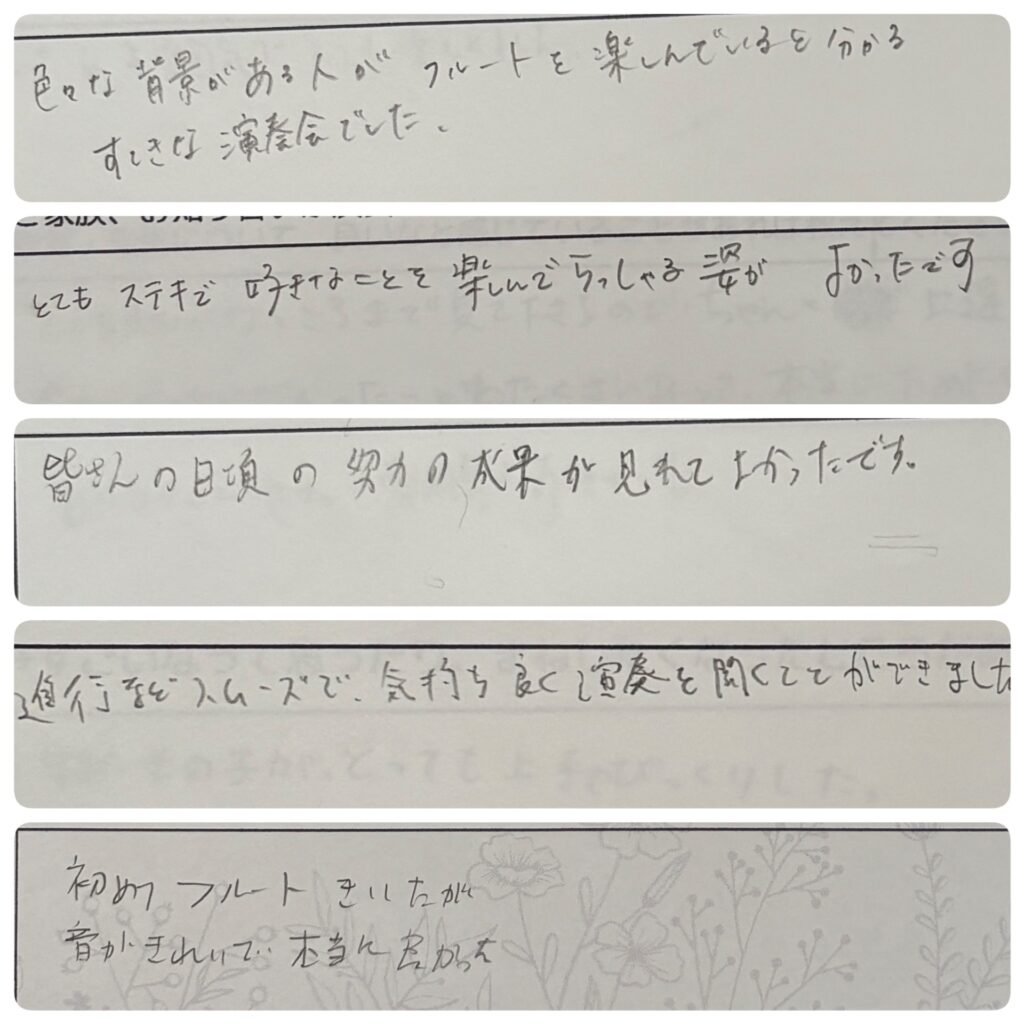 色々な背景がある人がフルートを楽しんでいるを分かる
すてきな演奏会でした。
とてもステキで 好きなことを楽しんでらっしゃる姿が よかったです
皆さんの日頃の努力の成果が見れてよかったです。
進行などスムーズで、気持ち良く演奏を聞くことができました
初めフルートきいたが
音がきれいで 本当に良かった